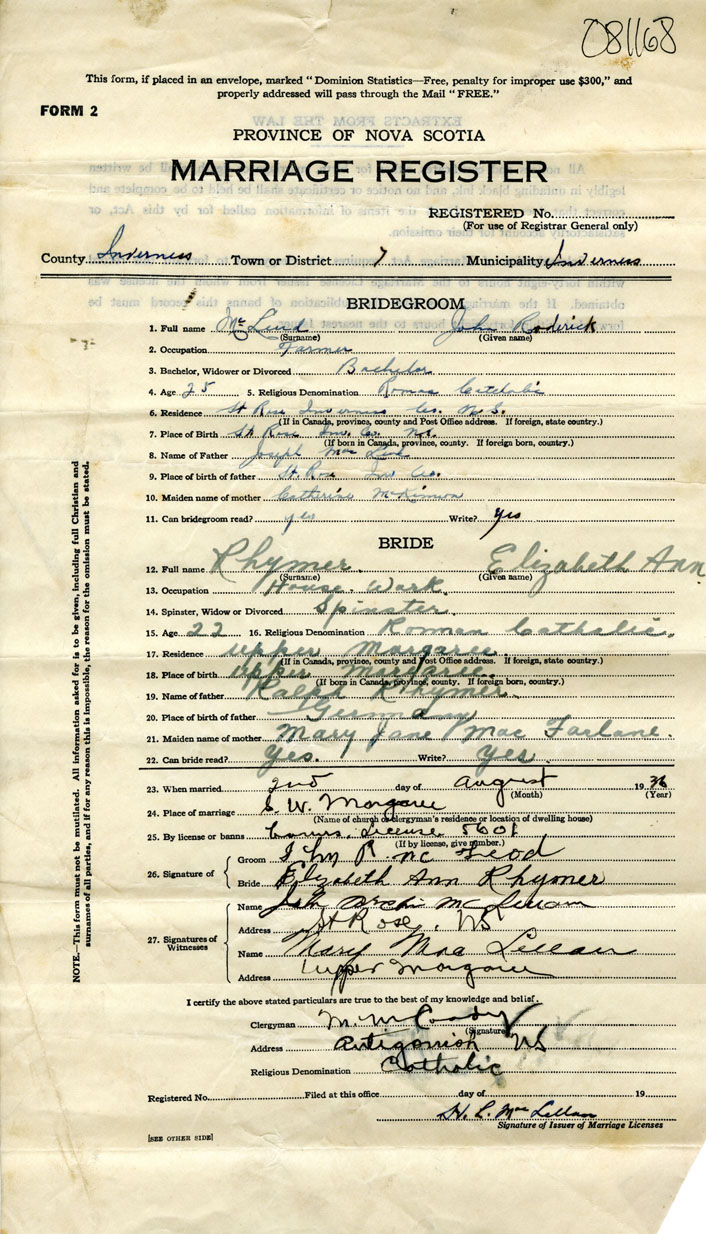 081168
This form, if placed in an envelope, marked "Dominion Statistics—Free, penalty for improper use $300," and
properly addressed will pass through the Mail "FREE."
FORM 2
PROVINCE OF NOVA SCOTIA
MARRIAGE REGISTER
REGISTERED No.
(For use of Registrar General only)
County Inverness Town or District 7 Municipality Inverness
BRIDEGROOM
1. Full name John Roderick
(Surname) (Given name)
2. Occupation Farmer
3. Bachelor, Widower or Divorced Bachelor
4. Age 25 5. Religious Denomination Roman Catholic
6. Residence St Rose Inverness Co. N.S.
(If in Canada, province, county and Post Office address. If foreign, state country.)
7. Place of Birth St Rose Inv. Co. N.S.
(If born in Canada, province, county. If foreign born, country.)
8. Name of Father Joseph
9. Place of birth of father St Rose Inv Co.
10. Maiden name of mother Catherine McKinnon
11. Can bridegroom read? yes Write? yes
BRIDE
12. Full name Rhymer. Elizabeth Ann
(Surname) (Given name)
13. Occupation House Work.
14. Spinster, Widow or Divorced Spinster.
15. Age 22 16. Religious Denomination Roman Catholic.
17. Residence Upper Margaree
(If in Canada, province, county and Post Office address. If foreign, state country.)
18. Place of birth Upper Margaree
(If born in Canada, province, county. If foreign born, country.)
19. Name of father Ralph Rhymer.
20. Place of birth of father Germany
21. Maiden name of mother Mary Jane Mac Farlane.
22. Can bride read? Yes. Write? Yes.
23. When married 2nd day of August 1936
(Month) (Year)
24. Place of marriage S. W. Margaree
(Name of church or clergyman's residence or location of dwelling house)
25. By license or banns License 5601
(If by license, give number.)
26. Signature of
Groom John R. McLeod
Bride Elizabeth Ann Rhymer
27. Signatures of Witnesses
Name John Archie McLellan
Address St Rose, NS
Name Mary MacLellan
Address Upper Margaree
I certify the above stated particulars are true to the best of my knowledge and belief.
Clergyman M. M. Coady
(Signature)
Address Antigonish NS
Religious Denomination Catholic
Registered No. Filed at this office day of 19
H. L. MacLellan
Signature of Issuer of Marriage Licenses
[SEE OTHER SIDE]
NOTE.—This form must not be mutilated. All information asked for is to be given, including full Christian and
surnames of all parties, and if for any reason this is impossible, the reason for the omission must be stated.